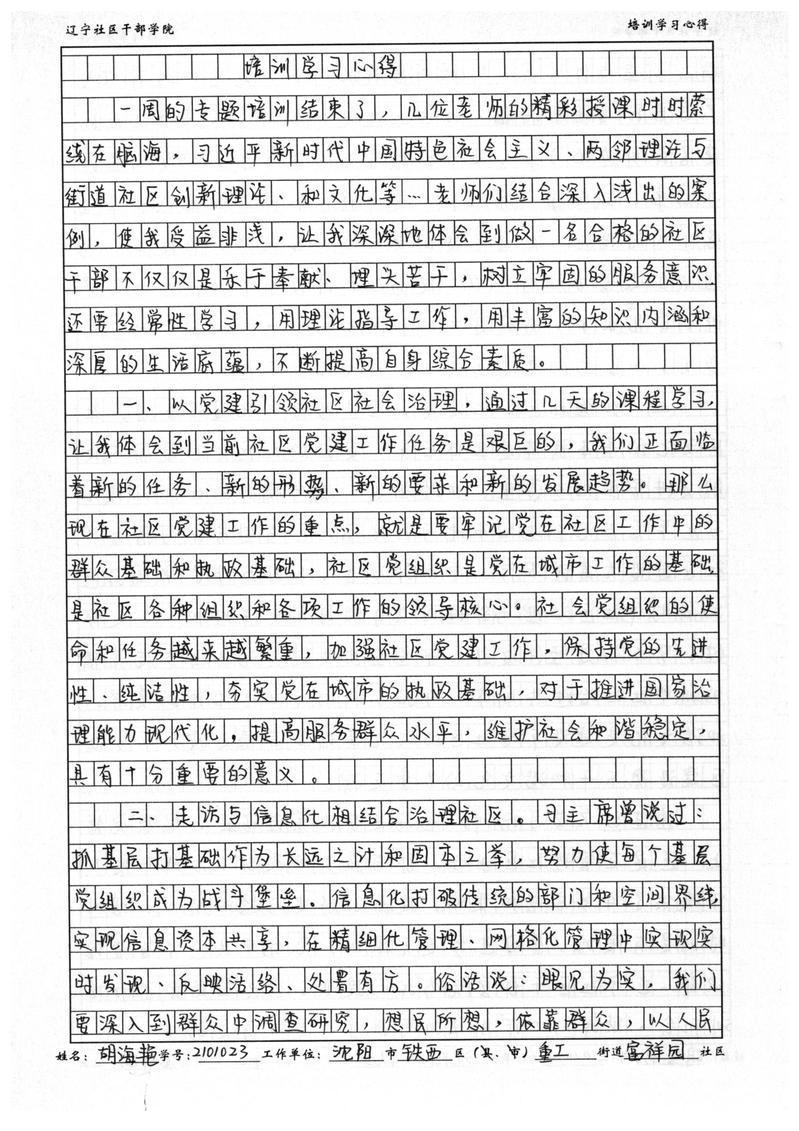 辽宁社区干部学院 培训学习心得
培训学习心得
一周的专题培训结束了，几位老师的精彩授课时时萦
绕在脑海，习近平新时代中国特色社会主义、两邻理论与
街道社区创新理论、和文化等…老师们结合深入浅出的案
例，使我受益非浅，让我深深地体会到做一名合格的社区
干部不仅仅是乐于奉献、埋头苦干，树立牢固的服务意识
还要经常性学习，用理论指导工作，用丰富的知识内涵和
深厚的生活底蕴，不断提高自身综合素质。
一、以党建引领社区社会治理，通过几天的课程学习，
让我体会到当前社区党建工作任务是艰巨的，我们正面临
着新的任务、新的形势、新的要求和新的发展趋势。那么
现在社区党建工作的重点，就是要牢记党在社区工作中的
群众基础和执政基础，社区党组织是党在城市工作的基础
是社区各种组织和各项工作的领导核心。社会党组织的使
命和任务越来越繁重，加强社区党建工作，保持党的先进
性、纯洁性，夯实党在城市的执政基础，对于推进国家治
理能力现代化，提高服务群众水平，维护社会和谐稳定，
具有十分重要的意义。
二、走访与信息化相结合治理社区。习主席曾说过：
抓基层打基础作为长远之计和固本之举，努力使每个基层
党组织成为战斗堡垒。信息化打破传统的部门和空间界线，
实现信息资本共享，在精细化管理、网格化管理中实现实
时发现、反映活络、处置有方。俗话说：眼见为实，我们
要深入到群众中调查研究，想民所想，依靠群众，以人民
姓名：胡海艳 学号：2101023 工作单位：沈阳 市 铁西 区（县、市）重工 街道 富祥园 社区